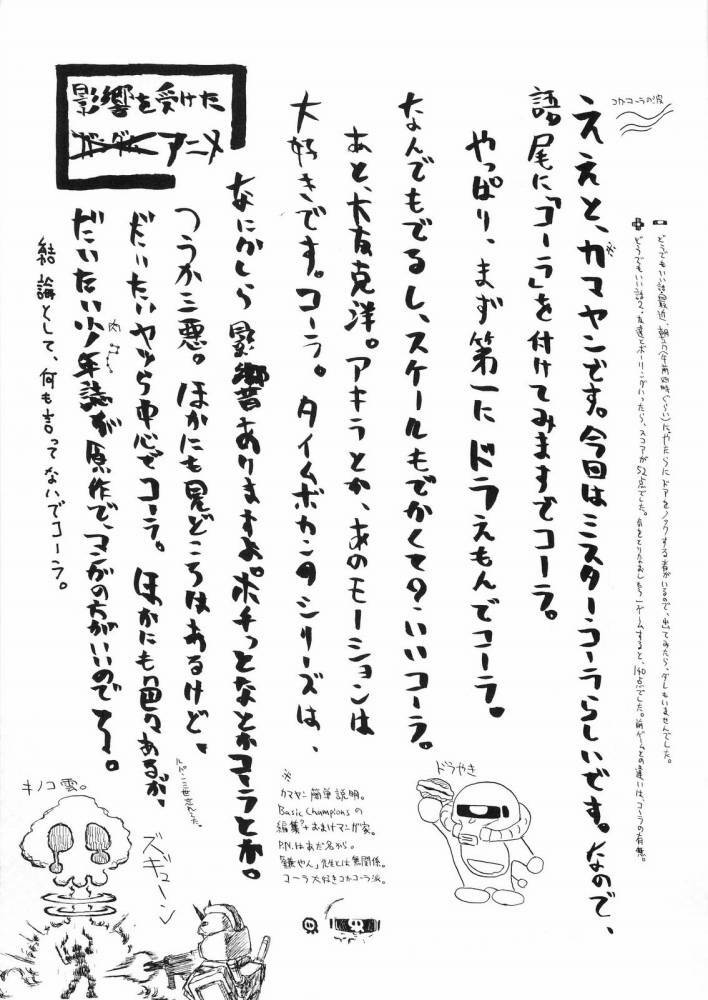 影響を受けた
ガンダム アニメ
コカコーラの波
ええと、カマヤンです。今回はミスターコーラらしいです。なので、
語尾に「コーラ」を付けてみますでコーラ。
やっぱり、まず第一にドラえもんでコーラ。
なんでもでるし、スケールもでかくての?いいコーラ。
あと、大友克洋。アキラとか、あのモーションは
大好きです。コーラ。タイムボカンのシリーズは、
なにかしら影響ありますよ。ポチっとなとかコーラとか。
つうか三悪。ほかにも見どころはあるけど、
だいたいヤツら中心でコーラ。ほかにも色々あるが、
だいたい少年誌が原作で、マンガの方がいいのでラ。
結論として、何も言ってないでコーラ。
どうでもいい話 最近、朝方(午前四時ぐらい)にやたらにドアをノックする者がいるので、出てみたら、ダレもいませんでした。
どうでもいい話2、友達とボーリングいったら、スコアが52点でした。ゲームすると、140点でした。前ゲームとの違いは、コーラの有無。
ルパン三世忘れてた。
※
カマヤン簡単説明。
Basic Championsの
編集?+おまけマンガ家。
P.N.はあだ名から。
「鎌やん」先生とは無関係。
コーラ大好きコカコーラ派。
ドラやき
キノコ雲。
ズギューン